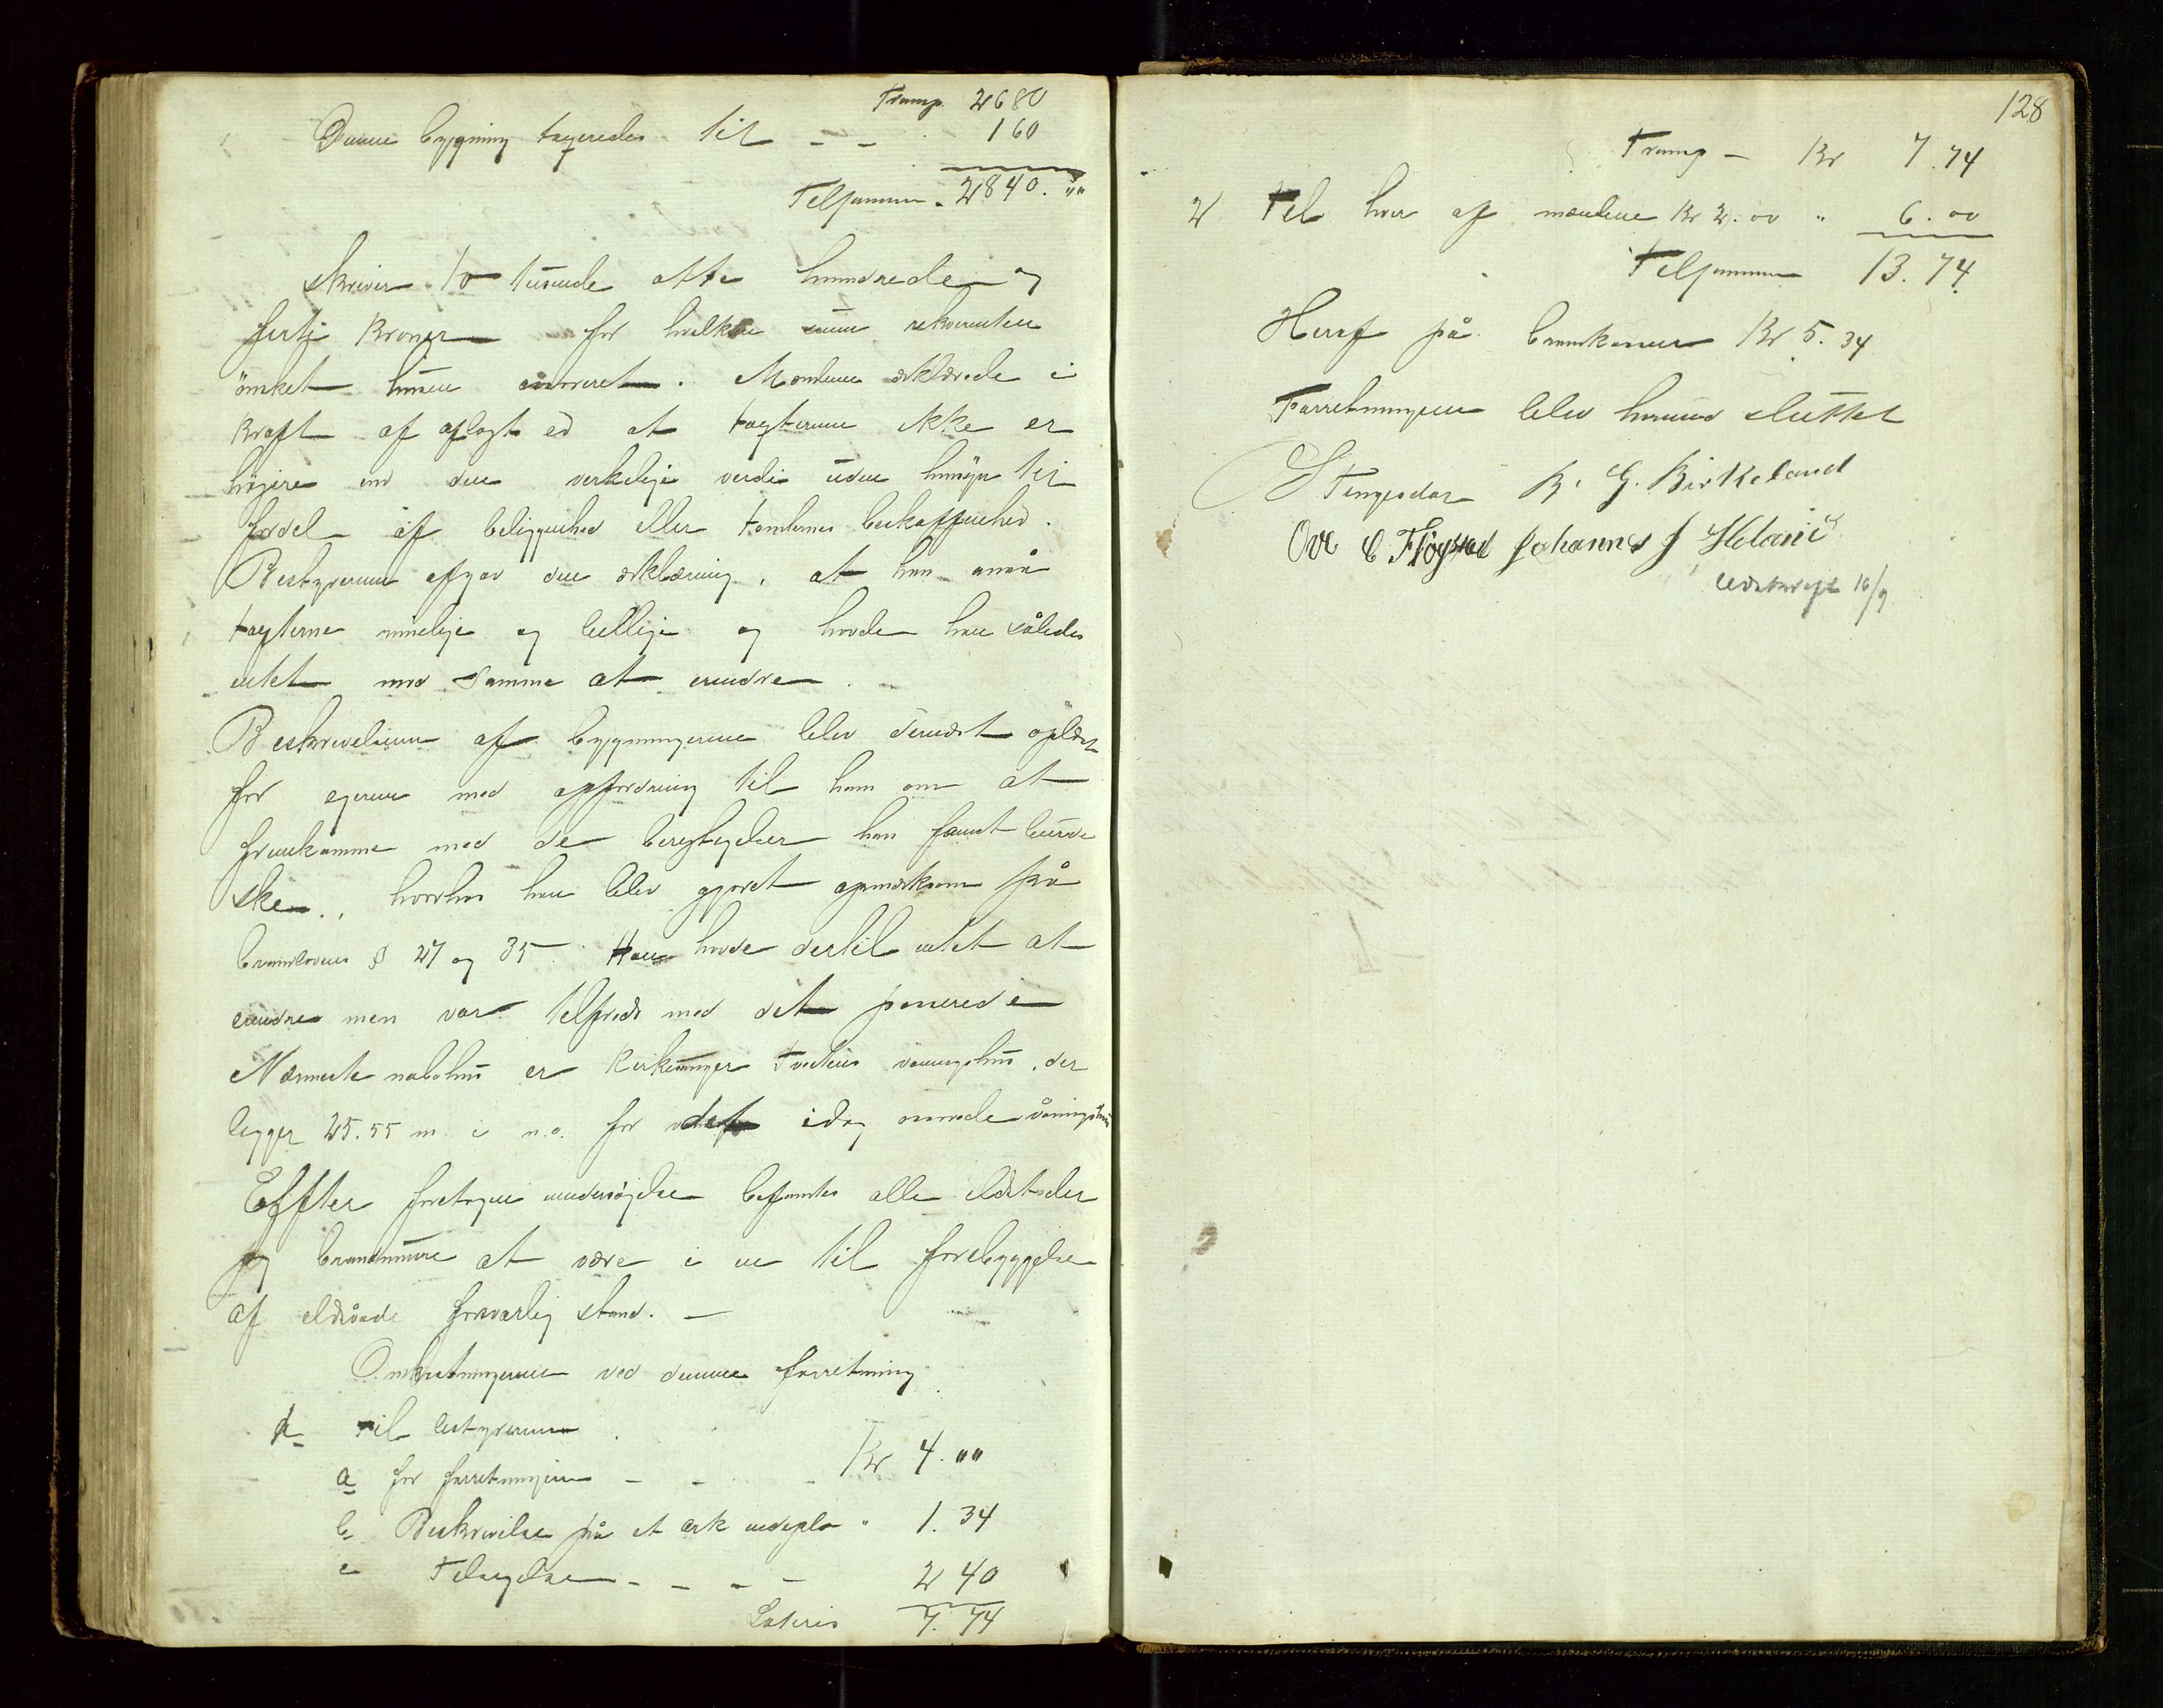 Transp. 2680
Denne bygning taxeredes til - - 160
Tilsammen. 2840. "
skriver to tusende otte hundrede og
forti Kroner for hvilken sum rekvirenten
önsket husene assureret. Mændene erklærede i
kraft af aflagt ed at taxterne ikke er
höjere end den verkelige verdi uden hensyn til
fordel af beliggenhed eller tomternes beskaffenhed.
Bestyreren afgav den erklæring, at han anså
taxterne rimelige og billige og havde han således
intet mod samme at erindre.
Beskrivelsen af bygningerne blev dernæst oplæst
for ejeren med opfordring til ham om at
fremkomme med de berigtigelser han fandt burde
ske, hvorhos han blev gjort opmerksom på
brandlovens § 27 og 35. Han havde dertil intet at
erindre men var tilfreds med det passerede
Nærmeste nabohus er Kirkesanger Tveteus våningshus, der
ligger 25.55 m i n.o. for det idag assurerede våningshus
Effter foretagen undersögelse befantes alle ildsteder
og brandmure at være i en til forebyggelse
af ildsvåde forsvarlig stand. -
Omkostningerne ved denne forretning
1 Til bestyreren
a for forretningen - - - Kr 4. "
b Beskrivelse på et ark " 1. 34
c Tilsigelse - - - - 2 40
Lateris 7. 74
128
Transp - Kr 7. 74
2 Til hver af mændene Kr 2.00 " 6. 00
Tilsammen 13. 74
Heraf på brandkassen Kr 5. 34
Forretningen blev hermed sluttet
S Tengesdar R. G. Birkeland
Ove C Fløgstad Johannes J
Udskrift 16/9